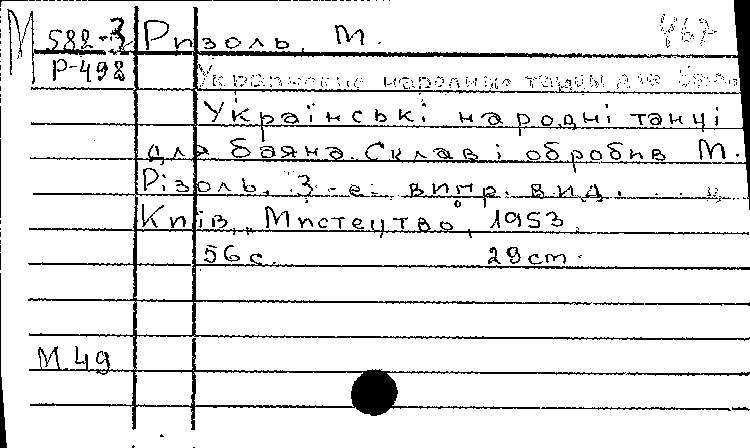 М 582-3 Ризоль, М. 467
Р-498 Украинские народные танцы для баяна
Українські народні танці
для баяна. Склав і обробив М.
Різоль. 3-е випр. вид.
Київ, „Мистецтво", 1953.
56 с. 29 cm.
М.49